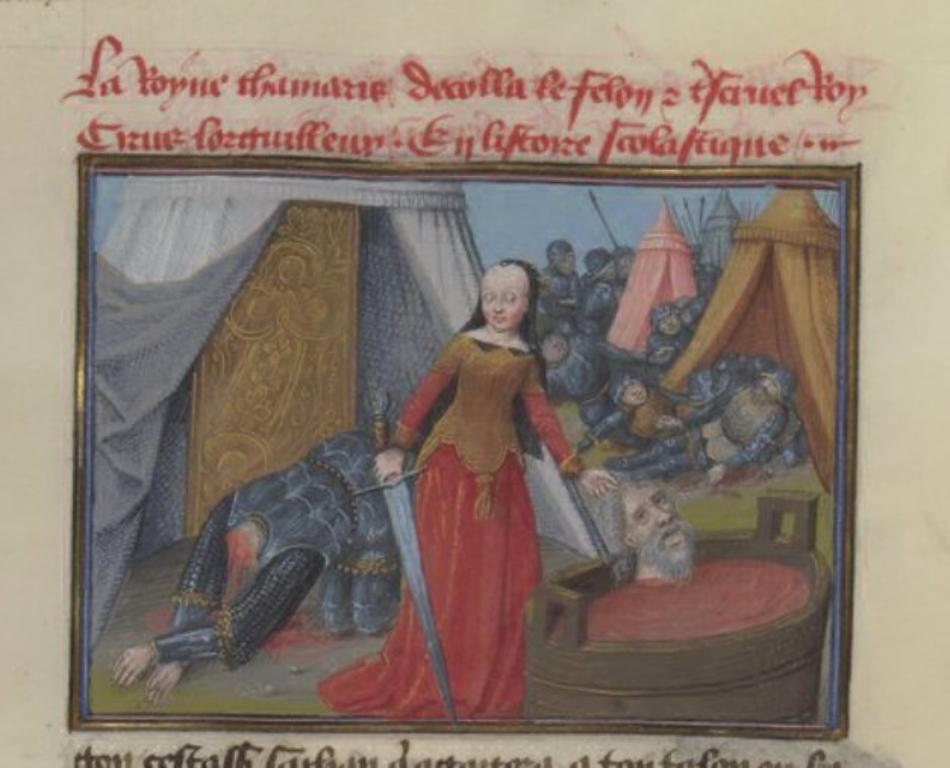 La Royne thamaris decolla le felon & tscruel Roy
Cirus lorguilleux. En listoire scolastique
ton